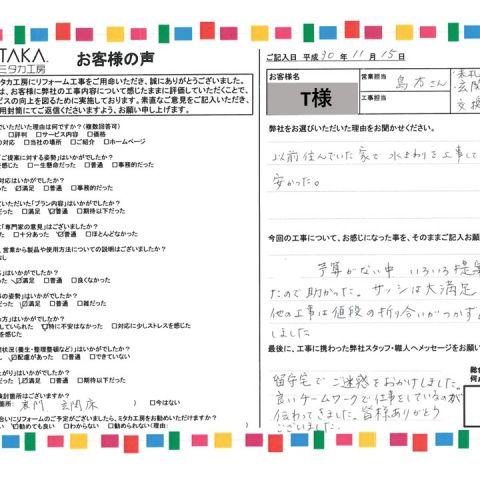 TAKA.
ミタカ工房
お客様の声
タカ工房にリフォーム工事をご用命いただき、誠にありがとうございました。
は、お客様に弊社の工事内容について感じたままに評価していただくことで、
ビスの向上を図るために実施しております。素直なご意見をご記入いただき、
用封筒にてご返信くださいますよう、お願い申し上げます。
いただいた理由は何ですか?(複数回答可)
□評判 □サービス内容 □価格
の対応 □当社の場所 □ご紹介 □ホームページ
「ご提案に対する姿勢」はいかがでしたか?
を感じた □一生懸命だった □普通 □事務的だった
対応はいかがでしたか?
った ☑満足 □普通 □事務的だった
いただいた「プラン内容」はいかがでしたか?
った □満足 ☑普通 □期待以下だった
「専門家の意見」はございましたか?
た □十分あった ☑普通 □ほとんどなかった
、営業から製品や使用方法についての説明はございましたか?
なし
」はいかがでしたか?
った ☑満足 □普通 □良くなかった
の姿勢」はいかがでしたか?
った ☑満足 □普通 □雑だった
方」はいかがでしたか?
していられた ☑特に不安はなかった □対応に少しストレスを感じた
を感じた
状況(養生・整理整頓など)はいかがでしたか?
し ☑配慮があった □できていない
がり」はいかがでしたか?
った ☑満足 □普通 □期待以下だった
検討箇所はございますか?
箇所: 表門 玄関床 ) □今はない
合いにリフォームのご予定がございましたら、ミタカ工房をお勧めいただけますか?
☑勧めても良い □わからない □勧められない(理由: )
ご記入日 平成 30 年 11 月 15 日
お客様名
T様
営業担当
鳥方さん
工事担当
表札
玄関
交換
弊社をお選びいただいた理由をお聞かせください。
以前住んでいた家で 水まわりを工事して
安かった。
今回の工事について、お感じになった事を、そのままご記入お願
予算がない中 いろいろ提案
たので助かった。サッシは大満足
他の工事は値段の折り合いがつかず
しました
最後に、工事に携わった弊社スタッフ・職人へメッセージをお願い
留守宅で ご迷惑をおかけしました。
良いチームワークで仕事をしているのが
伝わってきました。皆様ありがとう
ございました。
総合
何点